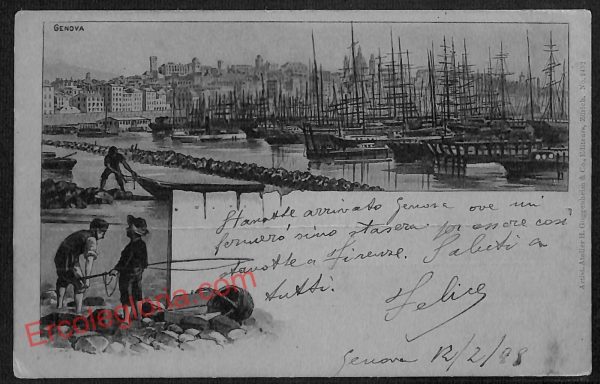 GENOVA
Stanotte arrivato Genova ove mi
fermerò sino stasera per essere così
stanotte a Firenze. Saluti a
tutti.
Felice
Genova 12/2/98
Artist. Atelier H. Guggenheim & Co., Editeurs, Zürich. No.
Ercolegloria.com